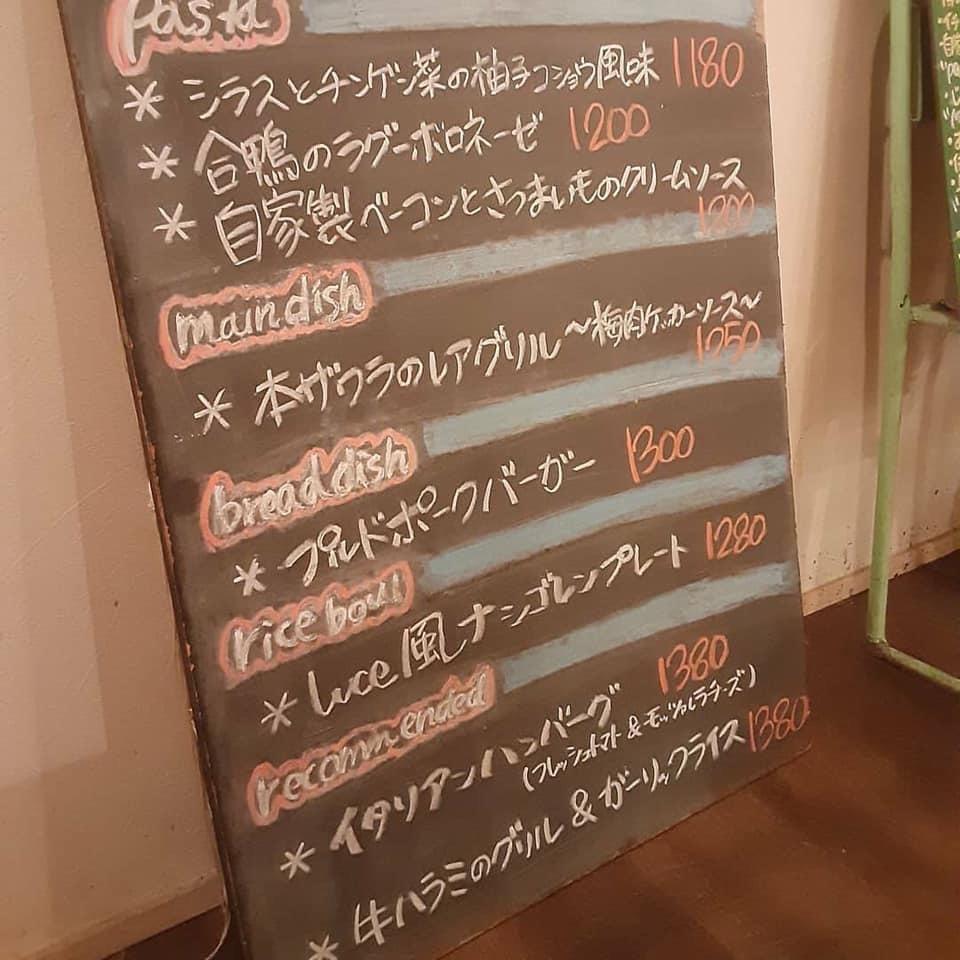 pasta
* シラスとチンゲン菜の柚子コショウ風味 1180
* 合鴨のラグーボロネーゼ 1200
* 自家製ベーコンとさつまいものクリームソース
1200
main dish
* 本ザワラのレアグリル ～梅肉ケッカーソース～
1250
bread dish
* プルドポークバーガー 1300
rice boul
* Luce風ナシゴレンプレート 1280
recommended
* イタリアンハンバーグ 1380
(フレッシュトマト & モッツァレラチーズ)
* 牛ハラミのグリル & ガーリックライス 1380